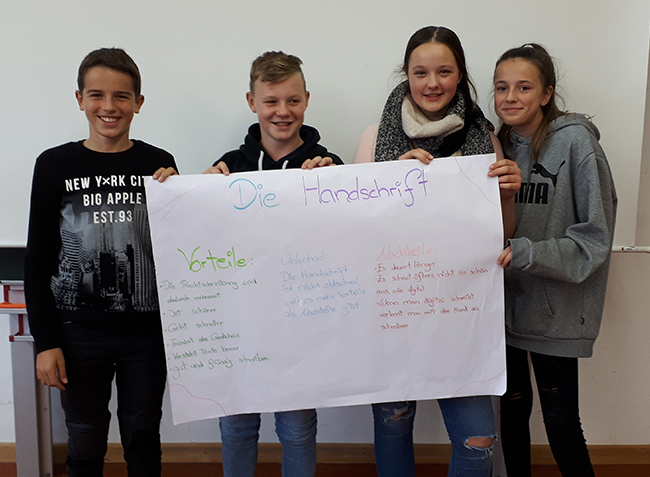 NEW YXRK CITY
BIG APPLE
EST.93
UMA
Die Handschrift
Vorteile:
• Die Rechtschreibung wird
dadurch verbessert
• Ist schöner
• Geht schneller
• Trainiert das Gedächtnis
• Versteht Texte besser
• gut und flüssig schreiben
Die Handschrift
ist nicht altmodisch
weil es mehr Vorteile
als Nachteile gibt
Nachteile:
• Es dauert länger
• Es schaut öfters nicht so schön
aus wie digital
• Wenn man digital schreibt
verlernt man mit der Hand zu
schreiben